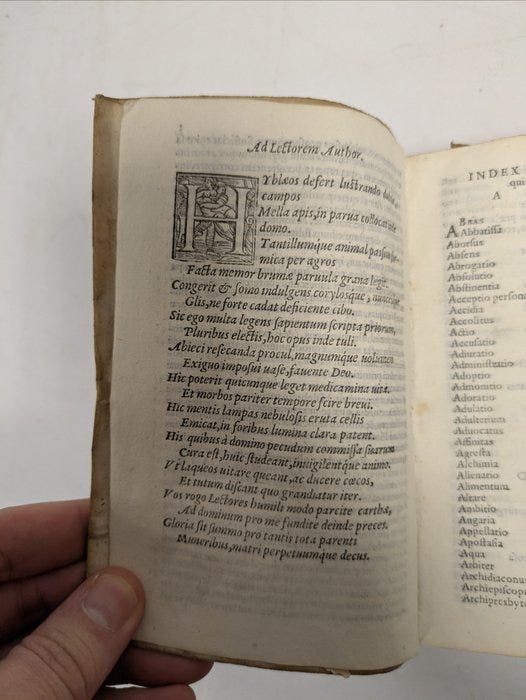 Ad Lectorem Author.
HYblæos defert lustrando
campos
Mella apis, in parua collocat
domo.
Tantillumque animal
mica per agros
Facta memor brumæ paruula grana legit.
Congerit & somo indulgens corylosque,
Glis, ne forte cadat deficiente cibo.
Sic ego multa legens sapientum scripta priorum,
Pluribus electis, hoc opus inde tuli.
Abieci resecanda procul, magnumque
Exiguo imposui uase, fauente Deo.
Hic poterit quicunque leget medicamina uitæ.
Et morbos pariter tempore scire breui.
Hic mentis lampas nebulosis eruta cellis
Emicat, in foribus lumina clara patent.
His quibus à domino pecudum commissa suarum
Cura est, huic studeant, inuigilentque animo.
Vt laqueos uitare queant, ac ducere cæcos,
Et tutum discant quo grandiatur iter.
Vos rogo Lectores humili modo parcite carthæ,
Ad dominum pro me fundite deinde preces.
Gloria sit summo pro tantis tota parenti
Muneribus, matri perpetuumque decus.
INDEX
A
ABBAS
Abbatissa
Aborsus
Absens
Abrogatio
Absolutio
Abstinentia
Acceptio
Accidia
Accolitus
Actio
Accusatio
Adiuratio
Administratio
Adoptio
Admonitio
Adoratio
Adulatio
Adulterium
Aduocatus
Affinitas
Agresta
Alchimia
Alienatio
Alimentum
Altare
Ambitio
Angaria
Appellatio
Apostasia
Aqua
Arbiter